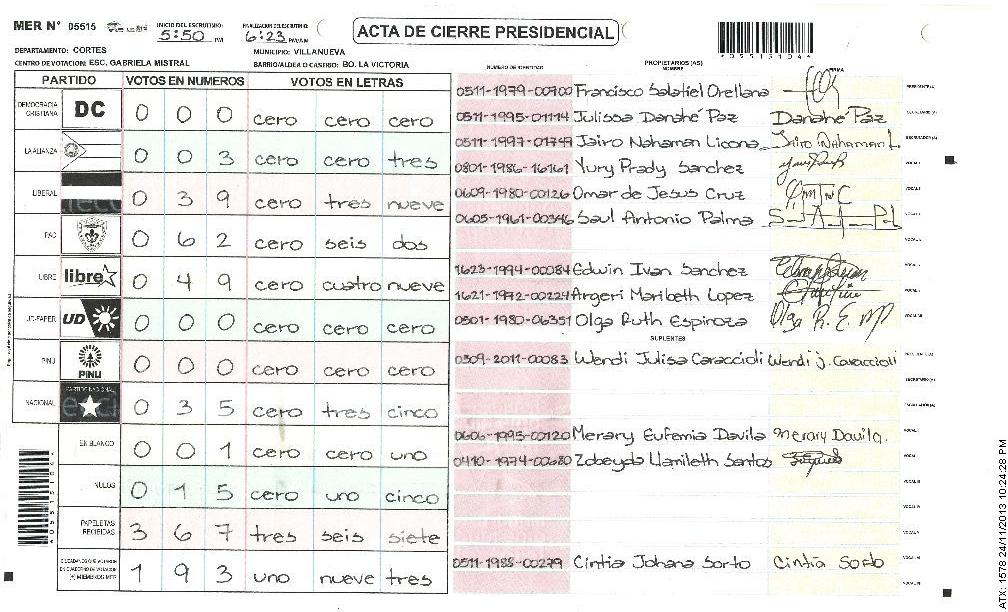 MER N° 05515 INICIO DEL ESCRUTINIO: 5:50 PM FINALIZACION DEL ESCRUTINIO: 6:23 PM/AM
ACTA DE CIERRE PRESIDENCIAL
*05515104*
DEPARTAMENTO: CORTES MUNICIPIO: VILLANUEVA
CENTRO DE VOTACION: ESC. GABRIELA MISTRAL BARRIO/ALDEA O CASERIO: BO. LA VICTORIA
PARTIDO VOTOS EN NUMEROS VOTOS EN LETRAS
DEMOCRACIA CRISTIANA DC 0 0 0 cero cero cero
LA ALIANZA 0 0 3 cero cero tres
LIBERAL 0 3 9 cero tres nueve
PAC 0 6 2 cero seis dos
LIBRE libre 0 4 9 cero cuatro nueve
UD-FAPER UD 0 0 0 cero cero cero
PINU PINU 0 0 0 cero cero cero
NACIONAL PARTIDO NACIONAL 0 3 5 cero tres cinco
EN BLANCO 0 0 1 cero cero uno
NULOS 0 1 5 cero uno cinco
PAPELETAS RECIBIDAS 3 6 7 tres seis siete
CIUDADANOS QUE VOTARON EN CUADERNO DE VOTACION (+) MIEMBROS MER 1 9 3 uno nueve tres
NUMERO DE IDENTIDAD PROPIETARIOS (AS) NOMBRE FIRMA
0511-1979-00700 Francisco Salatiel Orellana PRESIDENTE(A)
0511-1995-01114 Julissa Danahé Paz Danahé Paz SECRETARIO(A)
0511-1997-01799 Jairo Nahaman Licona Jairo Nahaman L. ESCRUTADOR(A)
0801-1986-16161 Yury Prady Sanchez VOCAL I
0609-1980-00126 Omar de Jesus Cruz VOCAL II
0605-1961-00346 Saul Antonio Palma
1623-1994-00084 Edwin Ivan Sanchez
1621-1972-00224 Argeri Maribeth Lopez
0501-1980-06351 Olga Ruth Espinoza Olga R. E. M
SUPLENTES
0309-2011-00083 Wendi Julisa Caraccioli Wendi j. Caraccioli PRESIDENTE(A)
SECRETARIO(A)
ESCRUTADOR(A)
0606-1995-00120 Merary Eufemia Davila Merary Davila.
0410-1974-00680 Zobeyda Llamileth Santos
0511-1988-00279 Cintia Johana Sorto Cintia Sorto
ATX: 1578 24/11/2013 10:24:28 PM